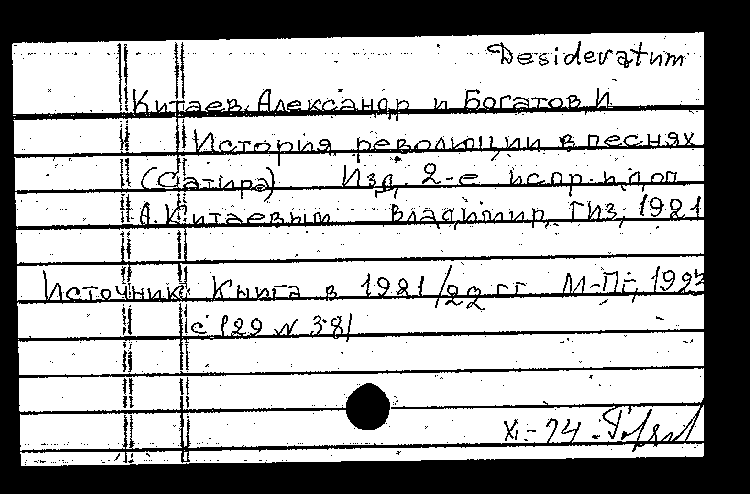 Desideratum
Китаев, Александр и Богатов, И.
История революции в песнях
(Сатира) Изд. 2-е испр. и доп.
А. Китаевым Владимир, ГИЗ, 1921
Источник: Книга в 1921/22 гг М-Пг, 1923
с 129 N 381
XI-74